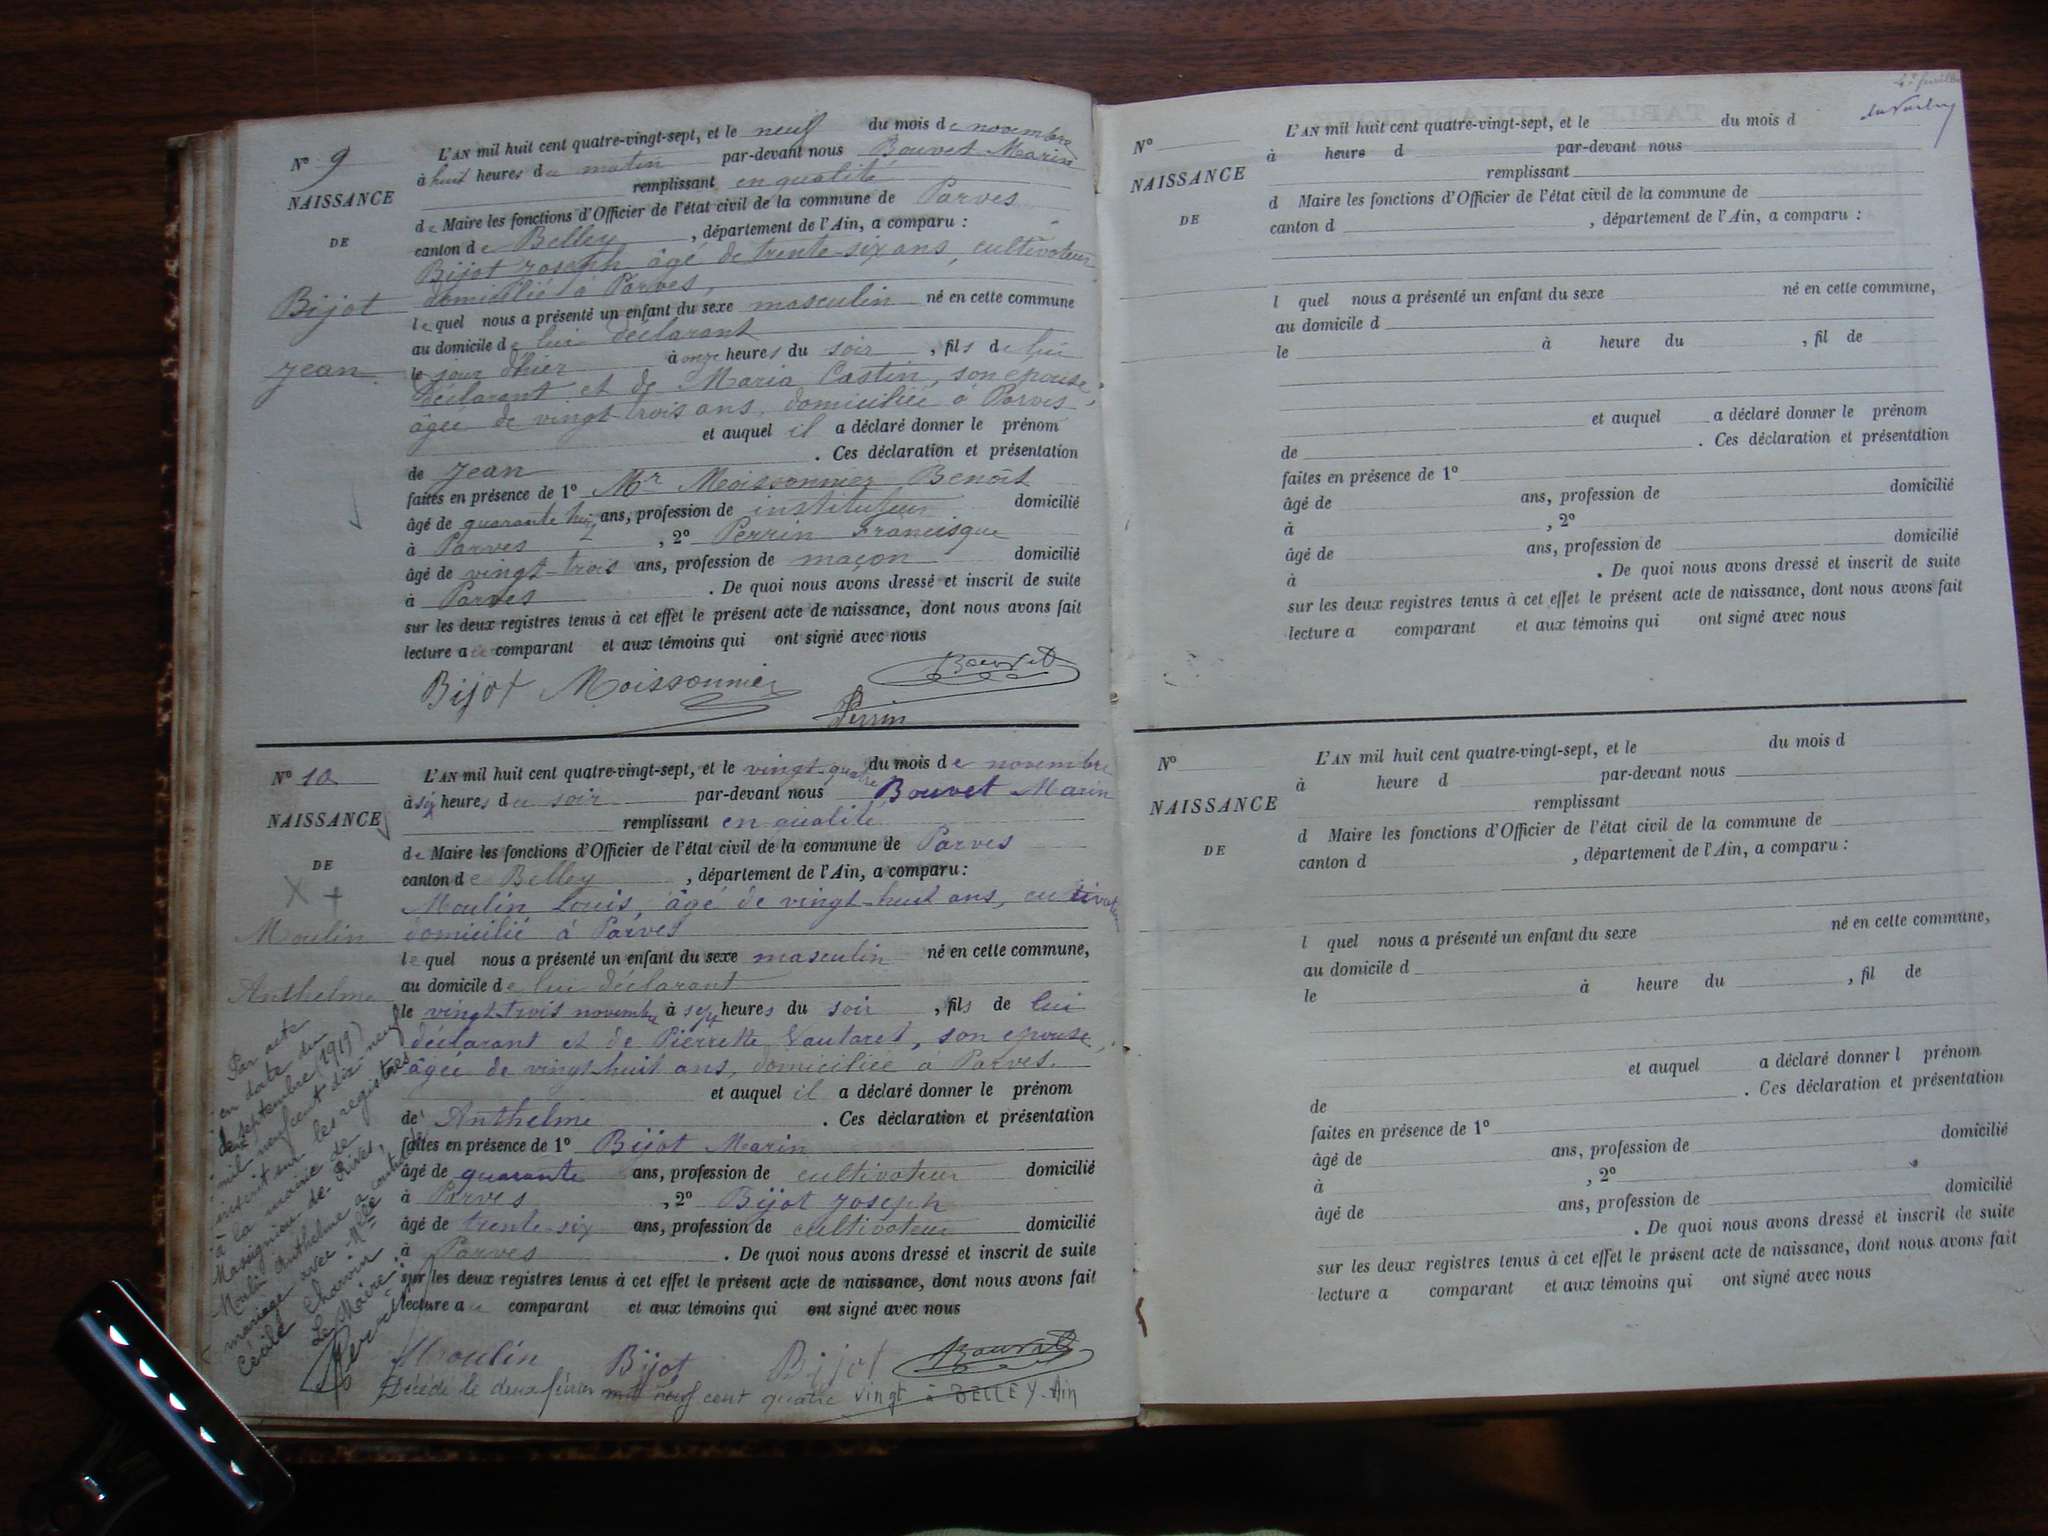 N° 9
NAISSANCE
DE
Bijot
Jean
L'AN mil huit cent quatre-vingt-sept, et le neuf du mois de novembre
à huit heures du matin par-devant nous Bouvet Marin
remplissant en qualité
de Maire les fonctions d'Officier de l'état civil de la commune de Parves
canton de Belley, département de l'Ain, a comparu :
Bijot Joseph âgé de trente-six ans, cultivateur
domicilié à Parves,
lequel nous a présenté un enfant du sexe masculin né en cette commune
au domicile de lui déclarant
le jour d'hier à onze heures du soir, fils de lui
déclarant et de Maria Castin, son épouse,
âgée de vingt-trois ans, domiciliée à Parves
et auquel il a déclaré donner le prénom
de Jean. Ces déclaration et présentation
faites en présence de 1° Mr Moissonnier Benoît
âgé de quarante huit ans, profession de instituteur domicilié
à Parves, 2° Perrin Francisque
âgé de vingt-trois ans, profession de maçon domicilié
à Parves. De quoi nous avons dressé et inscrit de suite
sur les deux registres tenus à cet effet le présent acte de naissance, dont nous avons fait
lecture au comparant et aux témoins qui ont signé avec nous
Bijot Moissonnier Bouvet
Perrin
N° 10
NAISSANCE
DE
Moulin
Anthelme
L'AN mil huit cent quatre-vingt-sept, et le vingt-quatre du mois de novembre
à six heures du soir par-devant nous Bouvet Marin
remplissant en qualité
de Maire les fonctions d'Officier de l'état civil de la commune de Parves
canton de Belley, département de l'Ain, a comparu :
Moulin Louis, âgé de vingt-huit ans, cultivateur
domicilié à Parves
lequel nous a présenté un enfant du sexe masculin né en cette commune,
au domicile de lui déclarant
le vingt-trois novembre à sept heures du soir, fils de lui
déclarant et de Pierrette Vautaret, son épouse,
âgée de vingt-huit ans, domiciliée à Parves.
et auquel il a déclaré donner le prénom
de Anthelme. Ces déclaration et présentation
faites en présence de 1° Bijot Marin
âgé de quarante ans, profession de cultivateur domicilié
à Parves, 2° Bijot Joseph
âgé de trente-six ans, profession de cultivateur domicilié
à Parves. De quoi nous avons dressé et inscrit de suite
sur les deux registres tenus à cet effet le présent acte de naissance, dont nous avons fait
lecture au comparant et aux témoins qui ont signé avec nous
Moulin Bijot Bijot Bouvet
Décédé le deux février mil neuf cent quatre vingt à BELLEY-Ain
Par acte
en date du
deux septembre (1919)
mil neuf cent dix neuf
inscrit sur les registres
à la mairie de
Massignieu-de-Rives,
Moulin Anthelme a contracté
mariage avec Mlle
Cécile Charvin
Le Maire :
N°
NAISSANCE
DE
L'AN mil huit cent quatre-vingt-sept, et le du mois d
à heure d par-devant nous
remplissant
d Maire les fonctions d'Officier de l'état civil de la commune de
canton d , département de l'Ain, a comparu :
l quel nous a présenté un enfant du sexe né en cette commune,
au domicile d
le à heure du , fil de
et auquel a déclaré donner le prénom
de . Ces déclaration et présentation
faites en présence de 1°
âgé de ans, profession de domicilié
à , 2°
âgé de ans, profession de domicilié
à . De quoi nous avons dressé et inscrit de suite
sur les deux registres tenus à cet effet le présent acte de naissance, dont nous avons fait
lecture a comparant et aux témoins qui ont signé avec nous
N°
NAISSANCE
DE
L'AN mil huit cent quatre-vingt-sept, et le du mois d
à heure d par-devant nous
remplissant
d Maire les fonctions d'Officier de l'état civil de la commune de
canton d , département de l'Ain, a comparu :
l quel nous a présenté un enfant du sexe né en cette commune,
au domicile d
le à heure du , fil de
et auquel a déclaré donner l prénom
de . Ces déclaration et présentation
faites en présence de 1°
âgé de ans, profession de domicilié
à , 2°
âgé de ans, profession de domicilié
. De quoi nous avons dressé et inscrit de suite
sur les deux registres tenus à cet effet le présent acte de naissance, dont nous avons fait
lecture a comparant et aux témoins qui ont signé avec nous